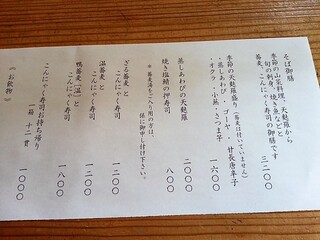 そば御膳
季節の山菜料理、天麩羅から
旬の刺身、焼き魚などと
蕎麦、こんにゃく寿司の御膳です
三二〇〇
季節の天麩羅盛り(蕎麦は付いていません)
・蒸しあわび・ゴーヤ・甘長唐辛子
・オクラ・小茄・さつま芋
一六〇〇
蒸しあわびの天麩羅
二〇〇〇
焼き塩鯖の押寿司
八〇〇
※蕎麦湯をご入り用の方は、
係に御申し付け下さい。
ざる蕎麦と
こんにゃく寿司
一二〇〇
温蕎麦と
こんにゃく寿司
一二〇〇
鴨蕎麦(温)と
こんにゃく寿司
一八〇〇
こんにゃく寿司お持ち帰り
一箱 十二貫
一八〇〇
《お飲物》